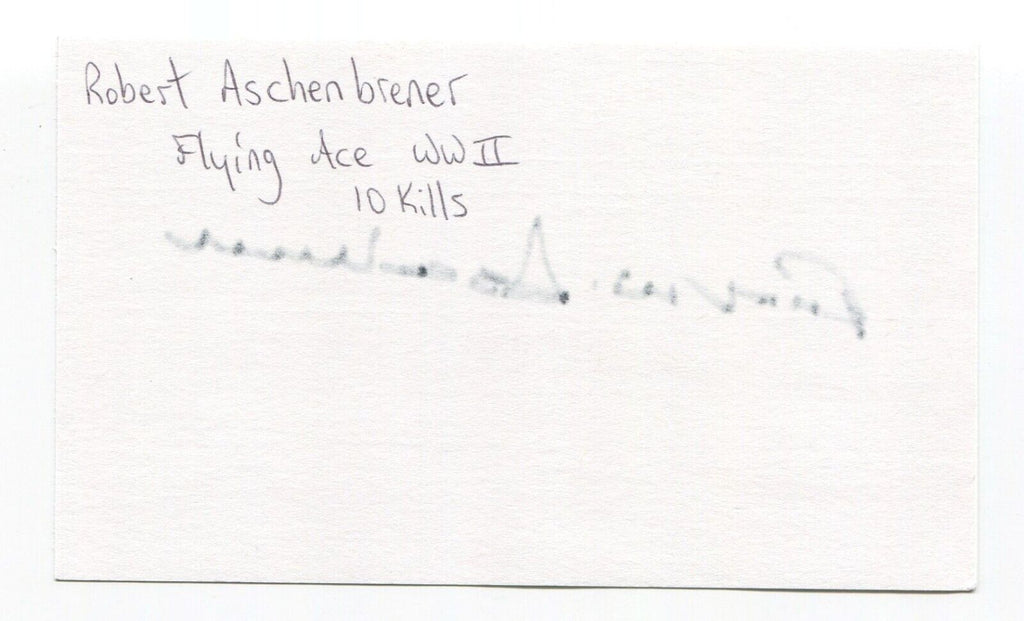 Robert Aschenbrener
Flying Ace WWII
10 Kills